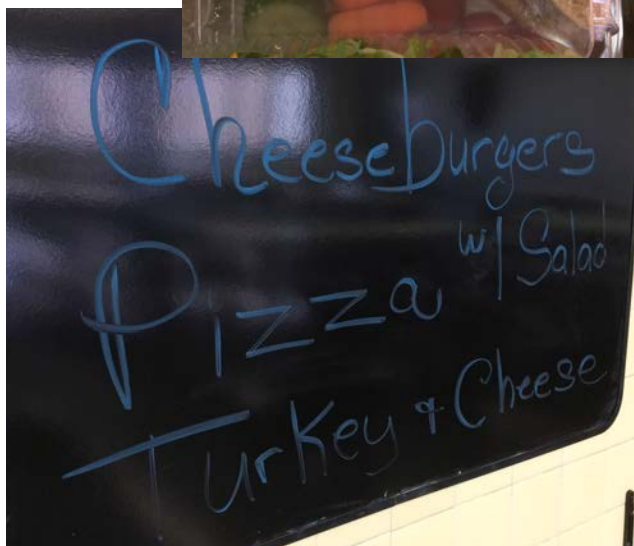 Cheeseburgers
Pizza w/ Salad
Turkey & Cheese